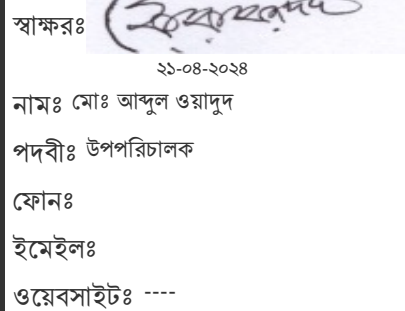 স্বাক্ষরঃ
২১-০৪-২০২৪
নামঃ মোঃ আব্দুল ওয়াদুদ
পদবীঃ উপপরিচালক
ফোনঃ
ইমেইলঃ
ওয়েবসাইটঃ ----